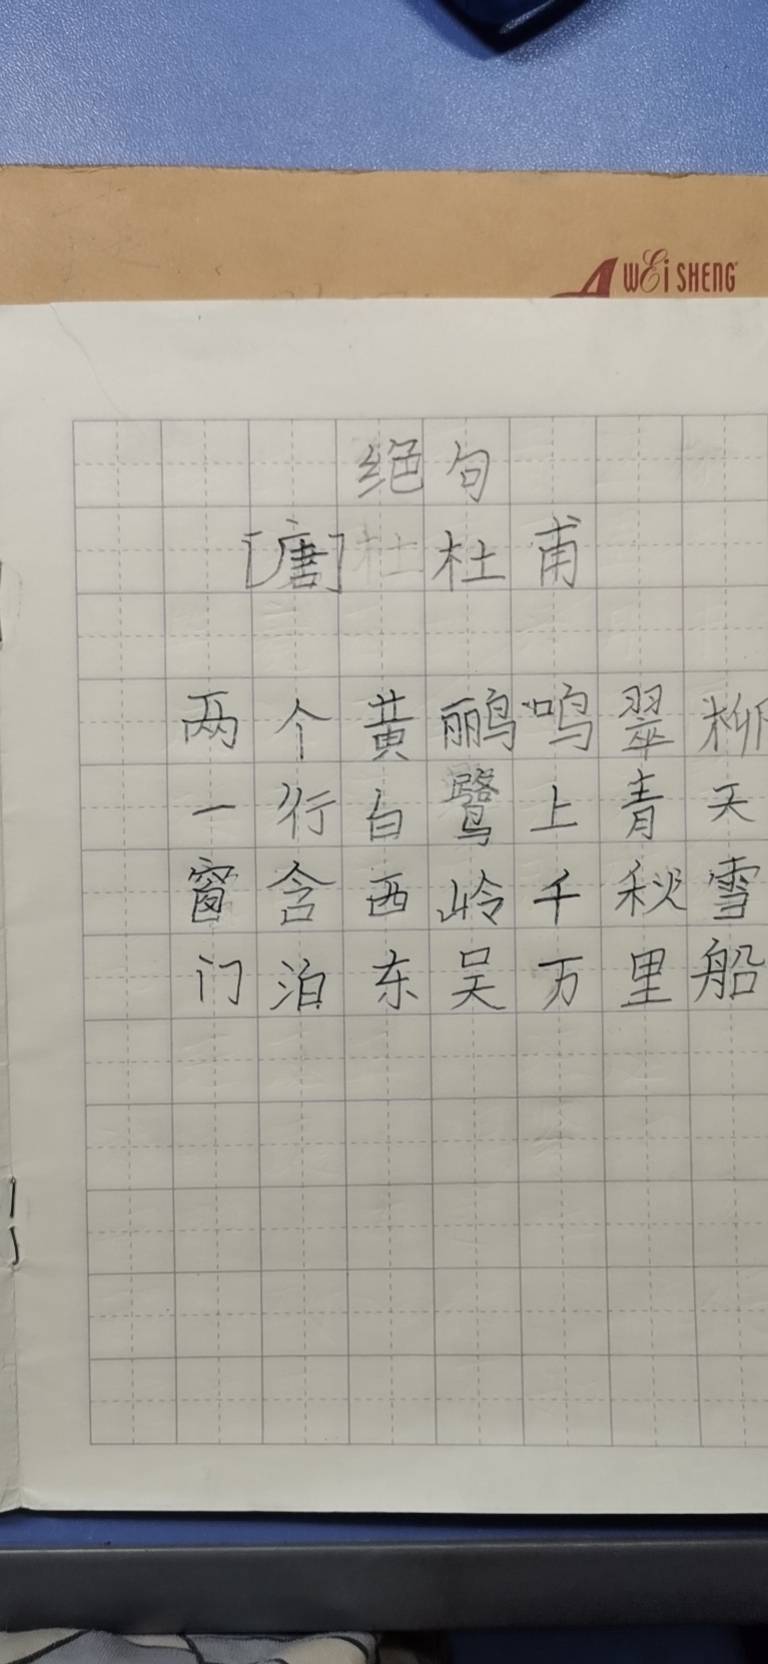 WEi SHENG
绝句
[唐] 杜甫
两个黄鹂鸣翠柳
一行白鹭上青天
窗含西岭千秋雪
门泊东吴万里船